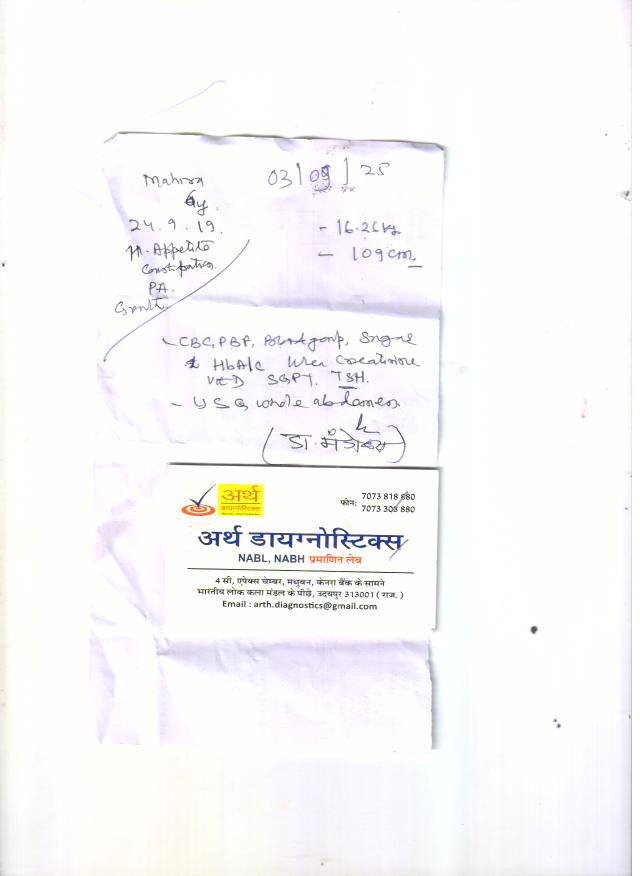 Mahira
03/09/25
6y
24.9.19.
- 16.26kg
- 109cm
Appetite
Constipation
PA.
Growth
- CBC, PBF, Blood group, Sugar
HbA1c Urea Creatinine
Vit D SGPT. TSH.
- USG whole abdomen
(डा.
अर्थ
डायग्नोस्टिक्स
फोन: 7073 818 880
7073 308 880
अर्थ डायग्नोस्टिक्स
NABL, NABH प्रमाणित लेब
4 सी, एपेक्स चेम्बर, मधुबन, केनरा बैंक के सामने
भारतीय लोक कला मंडल के पीछे, उदयपुर 313001 ( राज. )
Email : arth.diagnostics@gmail.com